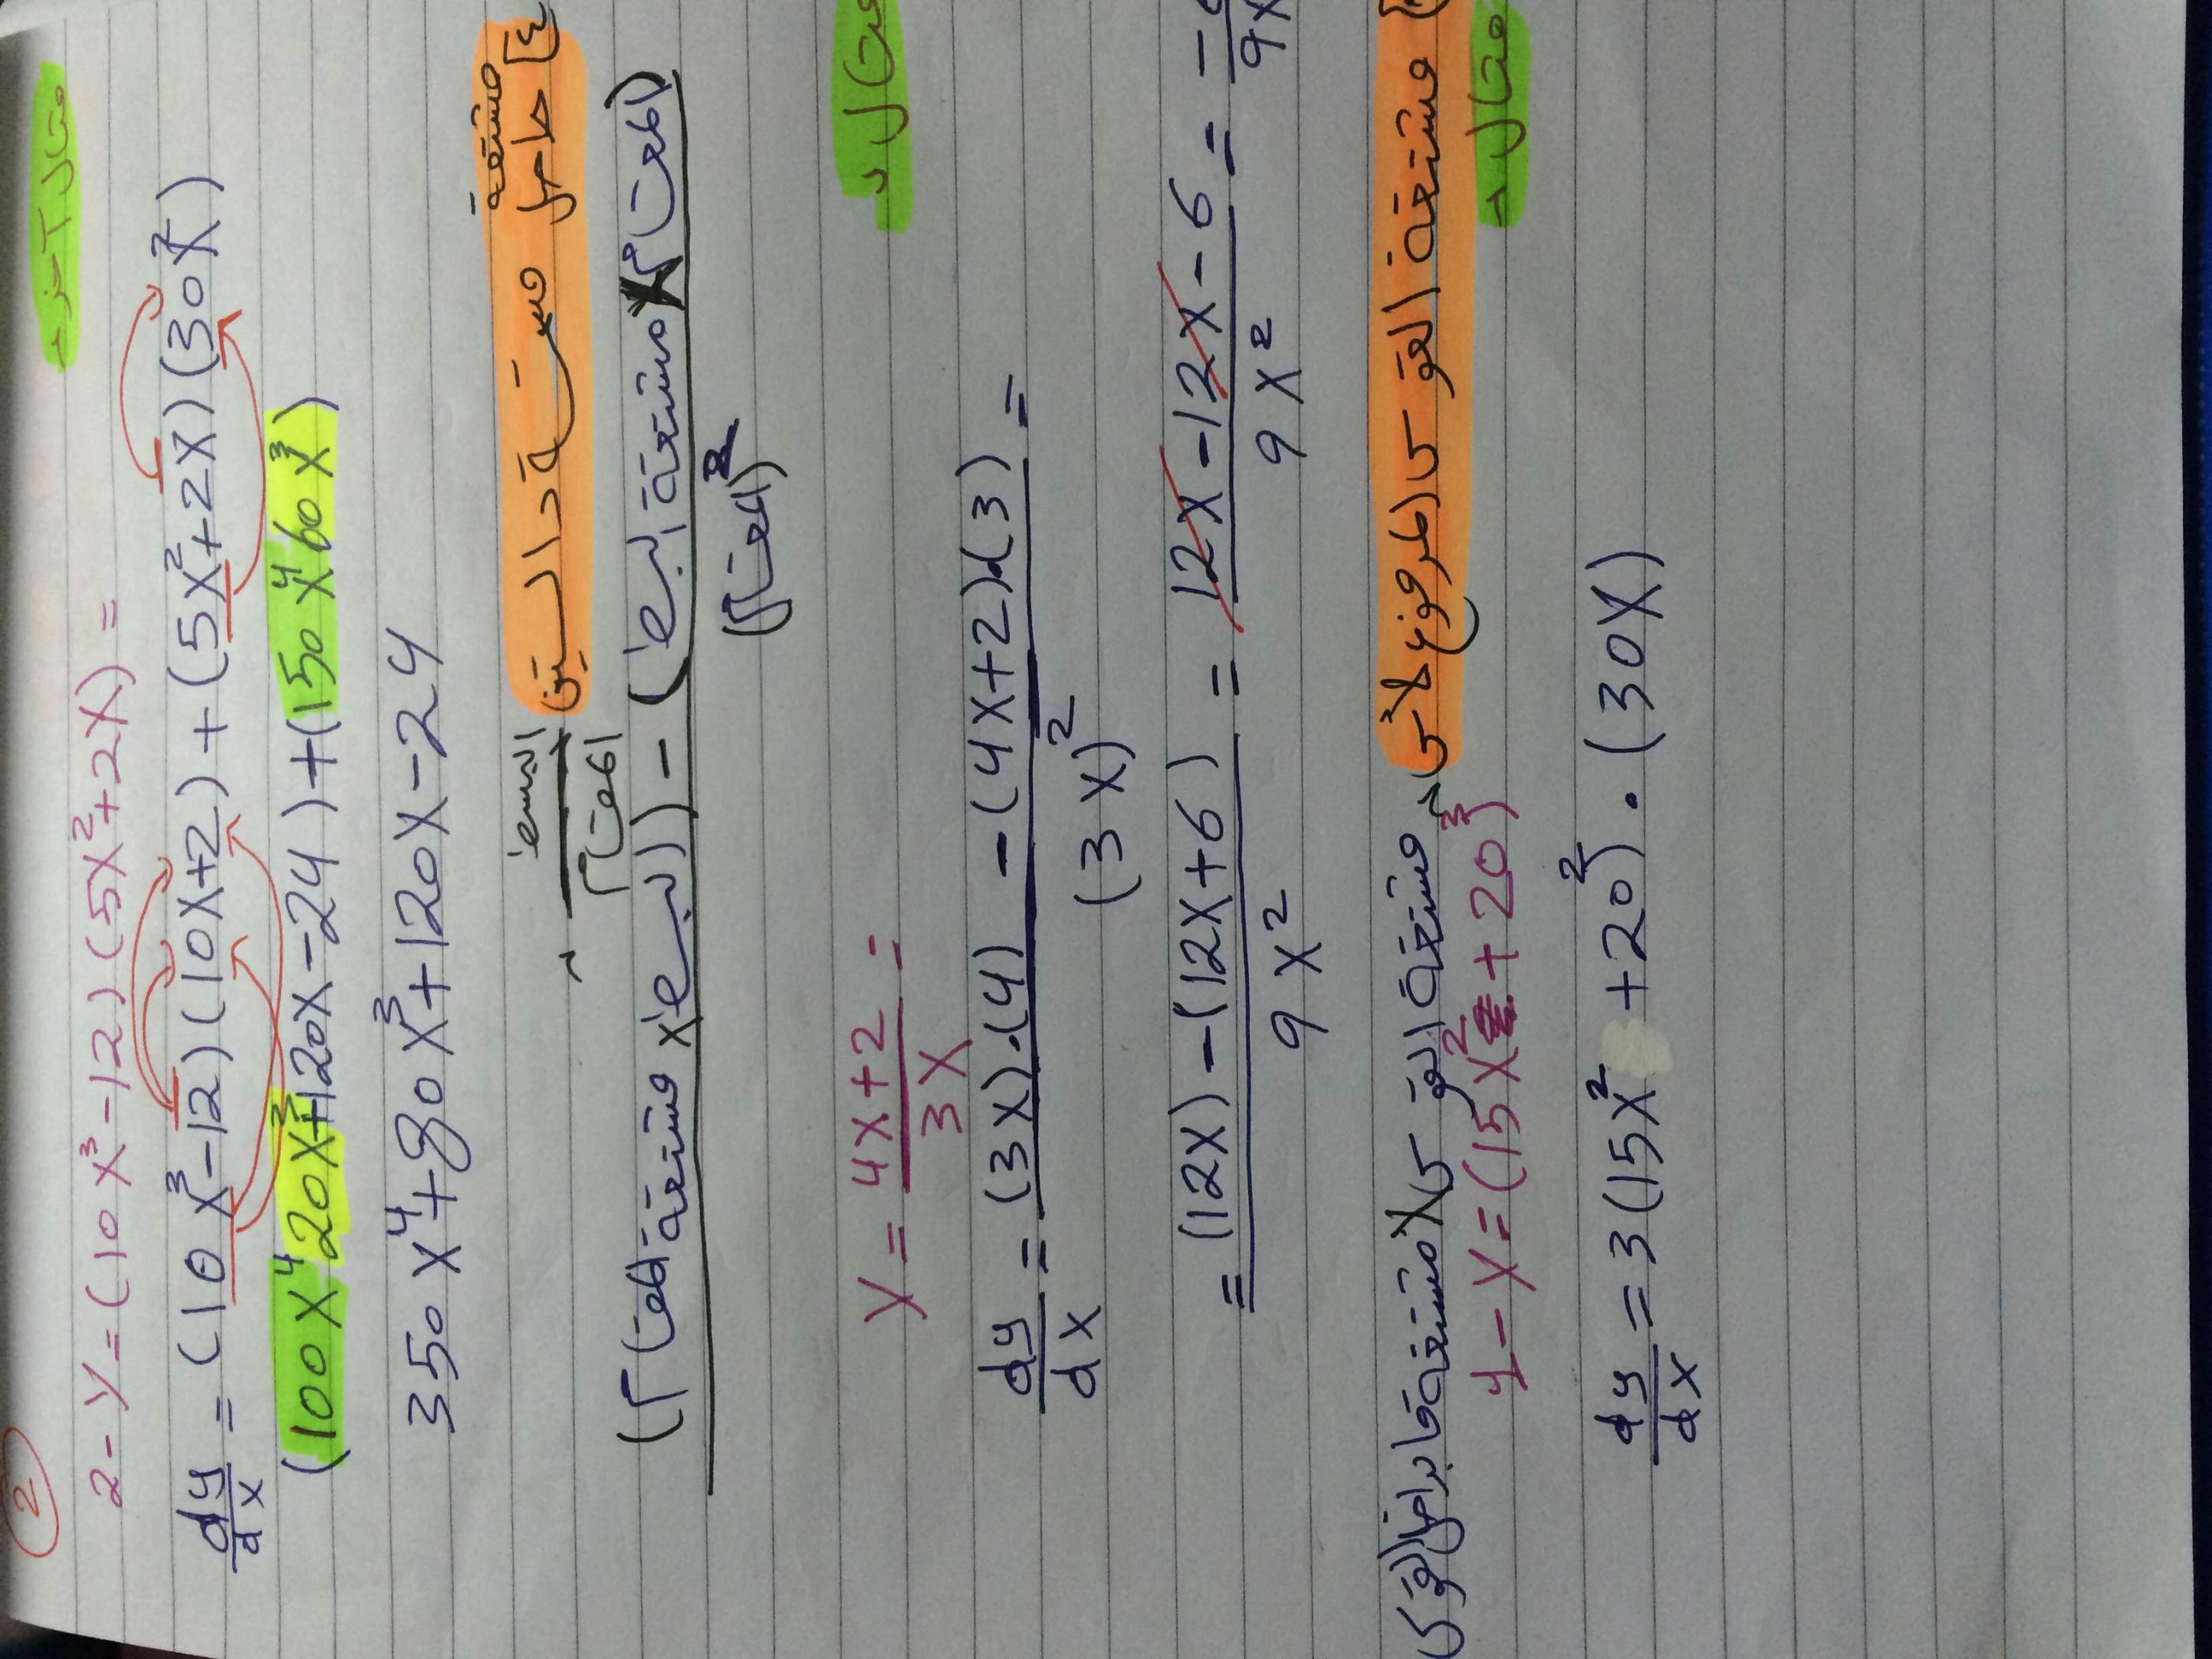 2
مثال آخر :-
2- y = (10x³ - 12) (5x² + 2x) =
dy/dx = (10x³ - 12) (10x + 2) + (5x² + 2x) (30x²)
(100x⁴ 20x³ + 120x - 24) + (150x⁴ 60x³)
350x⁴ + 80x³ + 120x - 24
4] حاصل قسمة دالتين البسط / المقام
مشتقة
(المقام × مشتقة البسط) - (البسط × مشتقة المقام)
(المقام)²
مثال :-
y = 4x+2 / 3x =
dy/dx = (3x).(4) - (4x+2).(3) / (3x)² =
= (12x) - (12x+6) / 9x² = 12x - 12x - 6 / 9x² = -6 / 9x
مشتقة القوس المرفوع لأس، مشتقة القوس × مشتقة ما بداخل القوس
مثال :-
1- y = (15x² + 20)³
dy/dx = 3(15x² + 20)² . (30x)